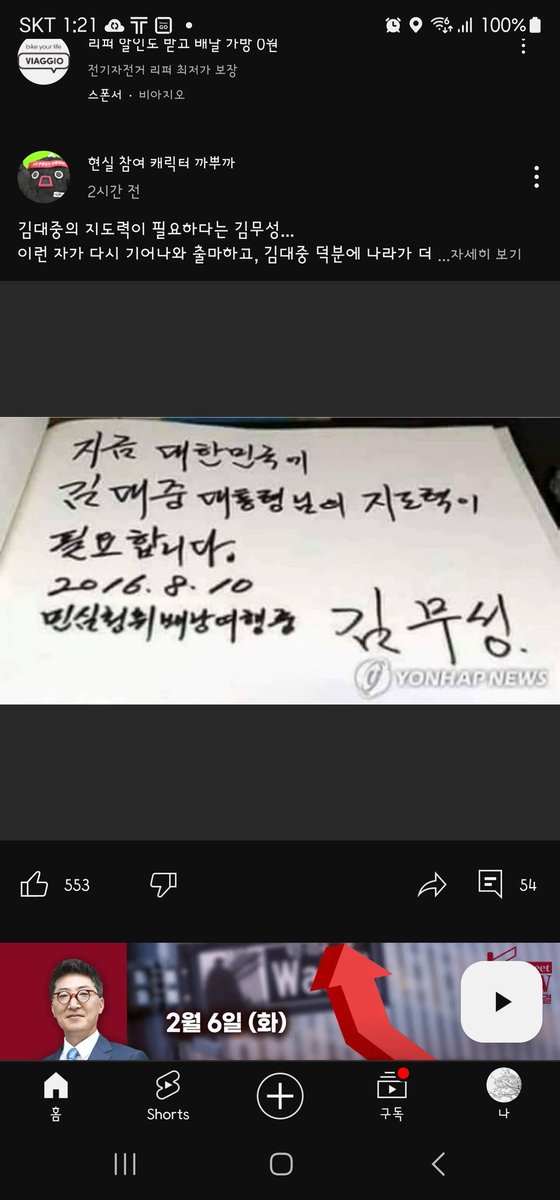 SKT 1:21
100%
bike your life
VIAGGIO
리퍼 할인도 받고 배달 가방 0원
전기자전거 리퍼 최저가 보장
스폰서 · 비아지오
현실 참여 캐릭터 까뿌까
2시간 전
김대중의 지도력이 필요하다는 김무성...
이런 자가 다시 기어나와 출마하고, 김대중 덕분에 나라가 더 ...자세히 보기
지금 대한민국에
김대중 대통령님의 지도력이
필요합니다.
2016. 8. 10
민심청취배낭여행중 김무성.
YONHAP NEWS
553
54
Wa
2월 6일 (화)
홈
Shorts
구독
나